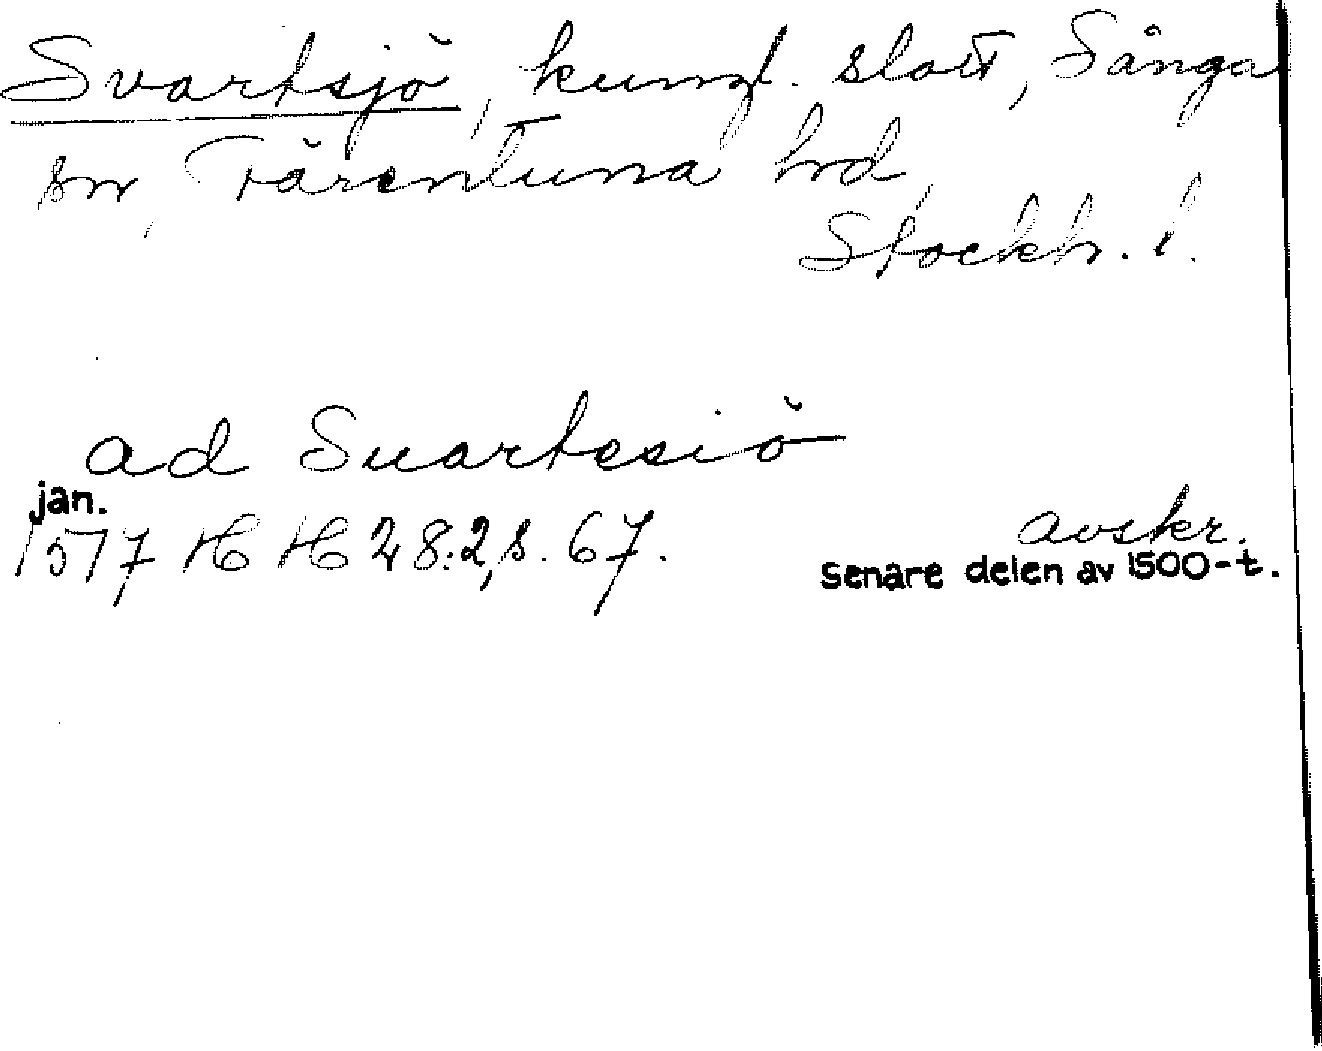 Svartsjö, kungl. slott, Sånga
sn, Färentuna hd,
Stockh. l.
ad Suartesiö
jan.
1577 HH 28:2, s. 67.
avskr.
senare delen av 1500-t.